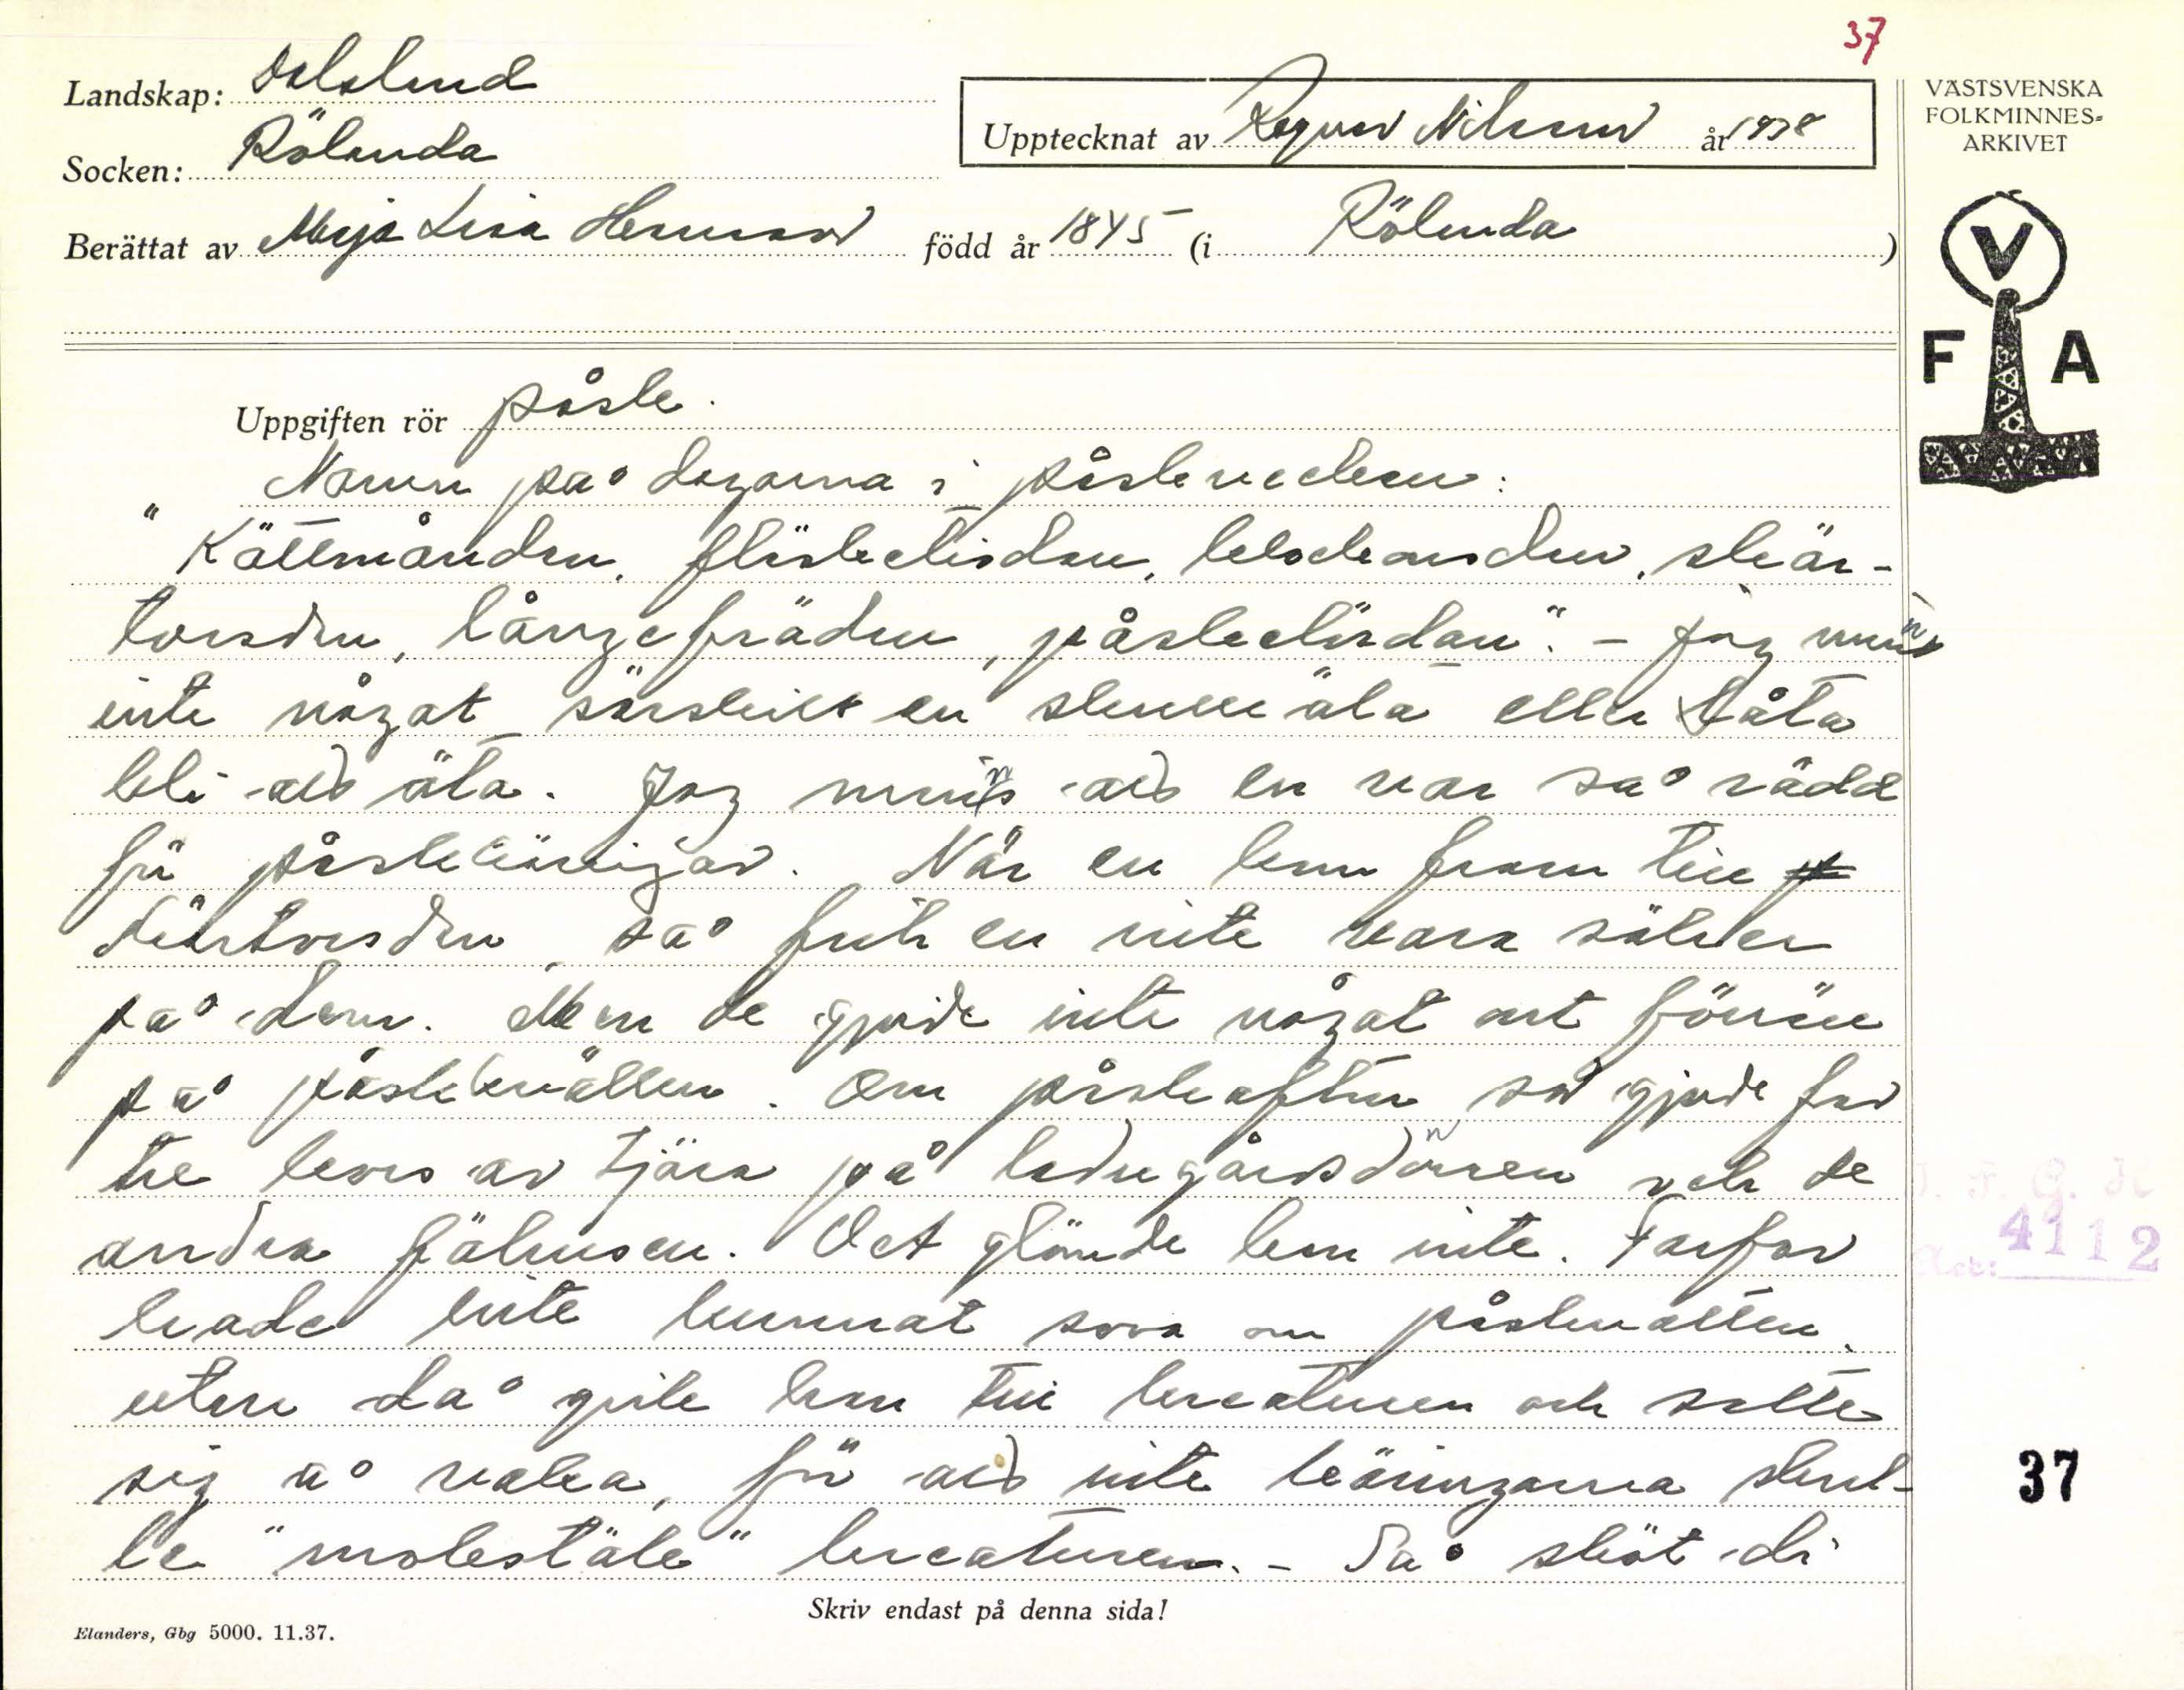 37
Landskap: Dalsland
Socken: Rölanda
Upptecknat av Ragnar Nilsson år 1938
Berättat av Maja Lisa Herman född år 1845 (i Rölanda)
VÄSTSVENSKA
FOLKMINNES=
ARKIVET
V
F A
Uppgiften rör påsk.
Namn på dagarna i påskveckan:
" Kättmåndan, fläsketisdan, askeonsdan, skär-
torsdan, långefrädan, påskelördan". - Jag minns
inte något särskilt en skulle äta eller låta
bli att äta. Jag minns att en var så rädd
för påskkäringar. När en kom fram till
skärtorsdan, så fick en inte vara säker
på dem. Men de gjorde inte något ont förrän
på påskkvällen. Om påskaftan så gjorde far
tre kors av tjära på ladugårdsdörren och de
andra fähusen. Det glömde han inte. Farfar
hade inte kunnat sova om påsknatten,
utan då gick han till kreaturen och satte
sig å vaka, för att inte käringarna skul-
le "molestäle" kreaturen. - Så sköt di
4112
37
Skriv endast på denna sida!
Elanders, Gbg 5000. 11.37.